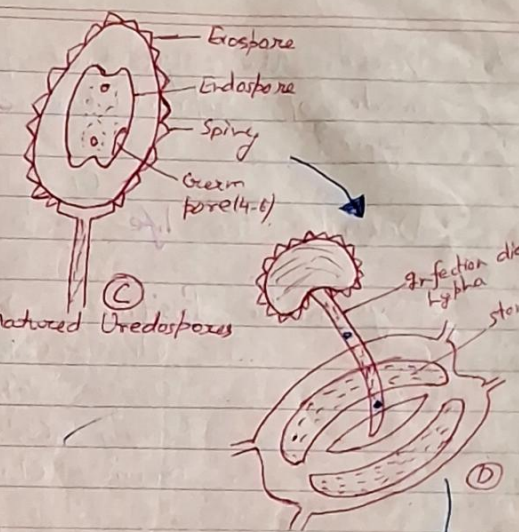 Exospore
Endospore
Spiny
Germ
pore(4-6)
C
Matured Uredospores
Infection dic
hypha
sto
D